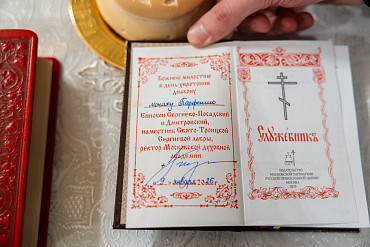 Божиею милостию
в день хиротонии
диакону
монаху Парфению
Епископ Сергиево-Посадский
и Дмитровский,
наместник Свято-Троицкой
Сергиевой лавры,
ректор Московской духовной
академии
9 января 2026 г
Служебникъ
ИЗДАТЕЛЬСТВО
МОСКОВСКОЙ ПАТРИАРХИИ
РУССКОЙ ПРАВОСЛАВНОЙ ЦЕРКВИ
МОСКВА